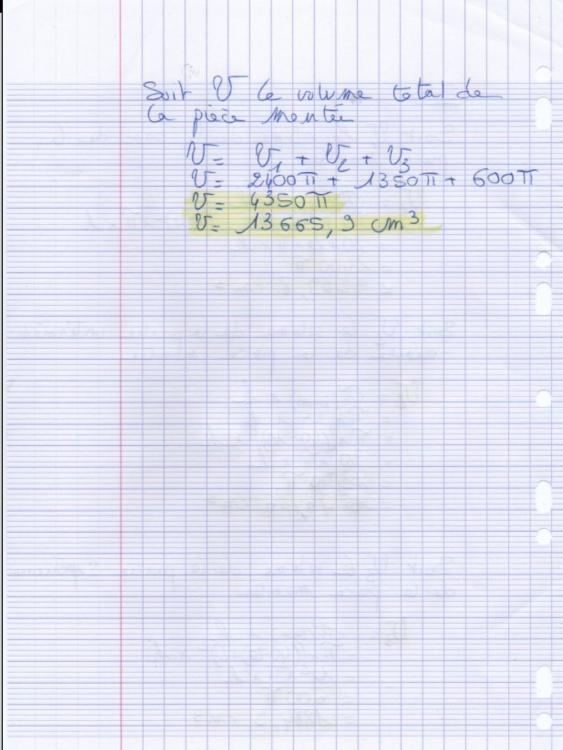 Soit V le volume total de
la pièce montée
V= V1 + V2 + V3
V= 2400π + 1350π + 600π
V= 4350π
V= 13665,9 cm³